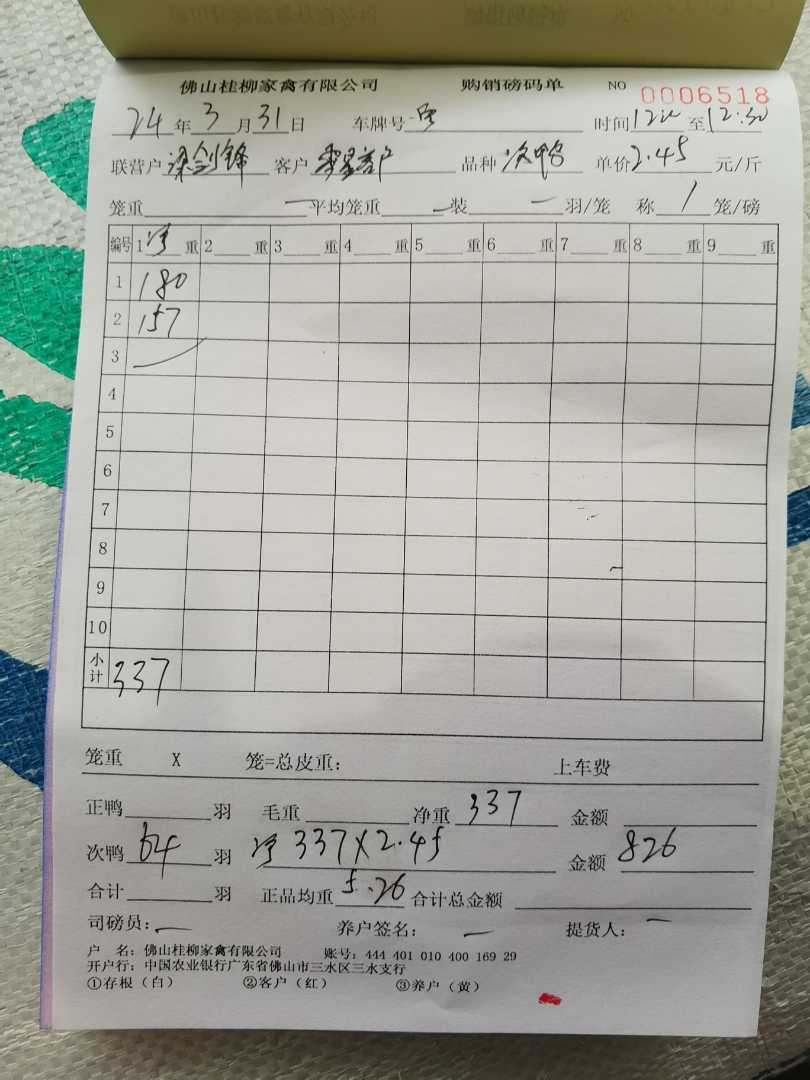 佛山桂柳家禽有限公司 购销磅码单 NO 0006518
24年3月31日 车牌号 时间 至12:30
联营户 梁剑锋 客户 品种 次鸭 单价2.45元/斤
笼重 一 平均笼重 一 装 一 羽/笼 称 1 笼/磅
编号 1净重 2 重 3 重 4 重 5 重 6 重 7 重 8 重 9 重
1 180
2 157
3
4
5
6
7
8
9
10
小计 337
笼重 X 笼=总皮重: 上车费
正鸭 羽 毛重 净重 337 金额
次鸭 64 羽 净 337X2.45 金额 826
合计 羽 正品均重 5.26 合计总金额
司磅员: 一 养户签名: 一 提货人: 一
户 名: 佛山桂柳家禽有限公司 账号: 444 401 010 400 169 29
开户行: 中国农业银行广东省佛山市三水区三水支行
①存根(白) ②客户(红) ③养户(黄)